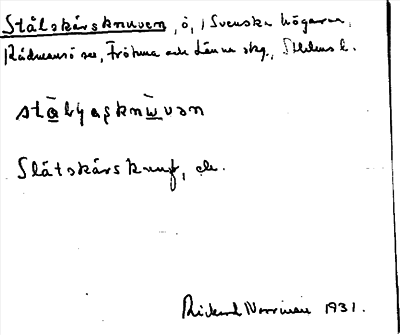 Stålskärsknuven, ö, i Svenska högarna,
Rådmansö sn, Frötuna och Länna skg., Sthlms l.
Slätskärs knuf, ek.
Rickard Norrman 1931.